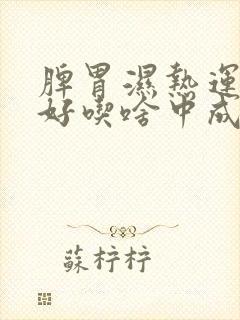 脾胃濕熱運
好喫啥中成
蘇梓梓